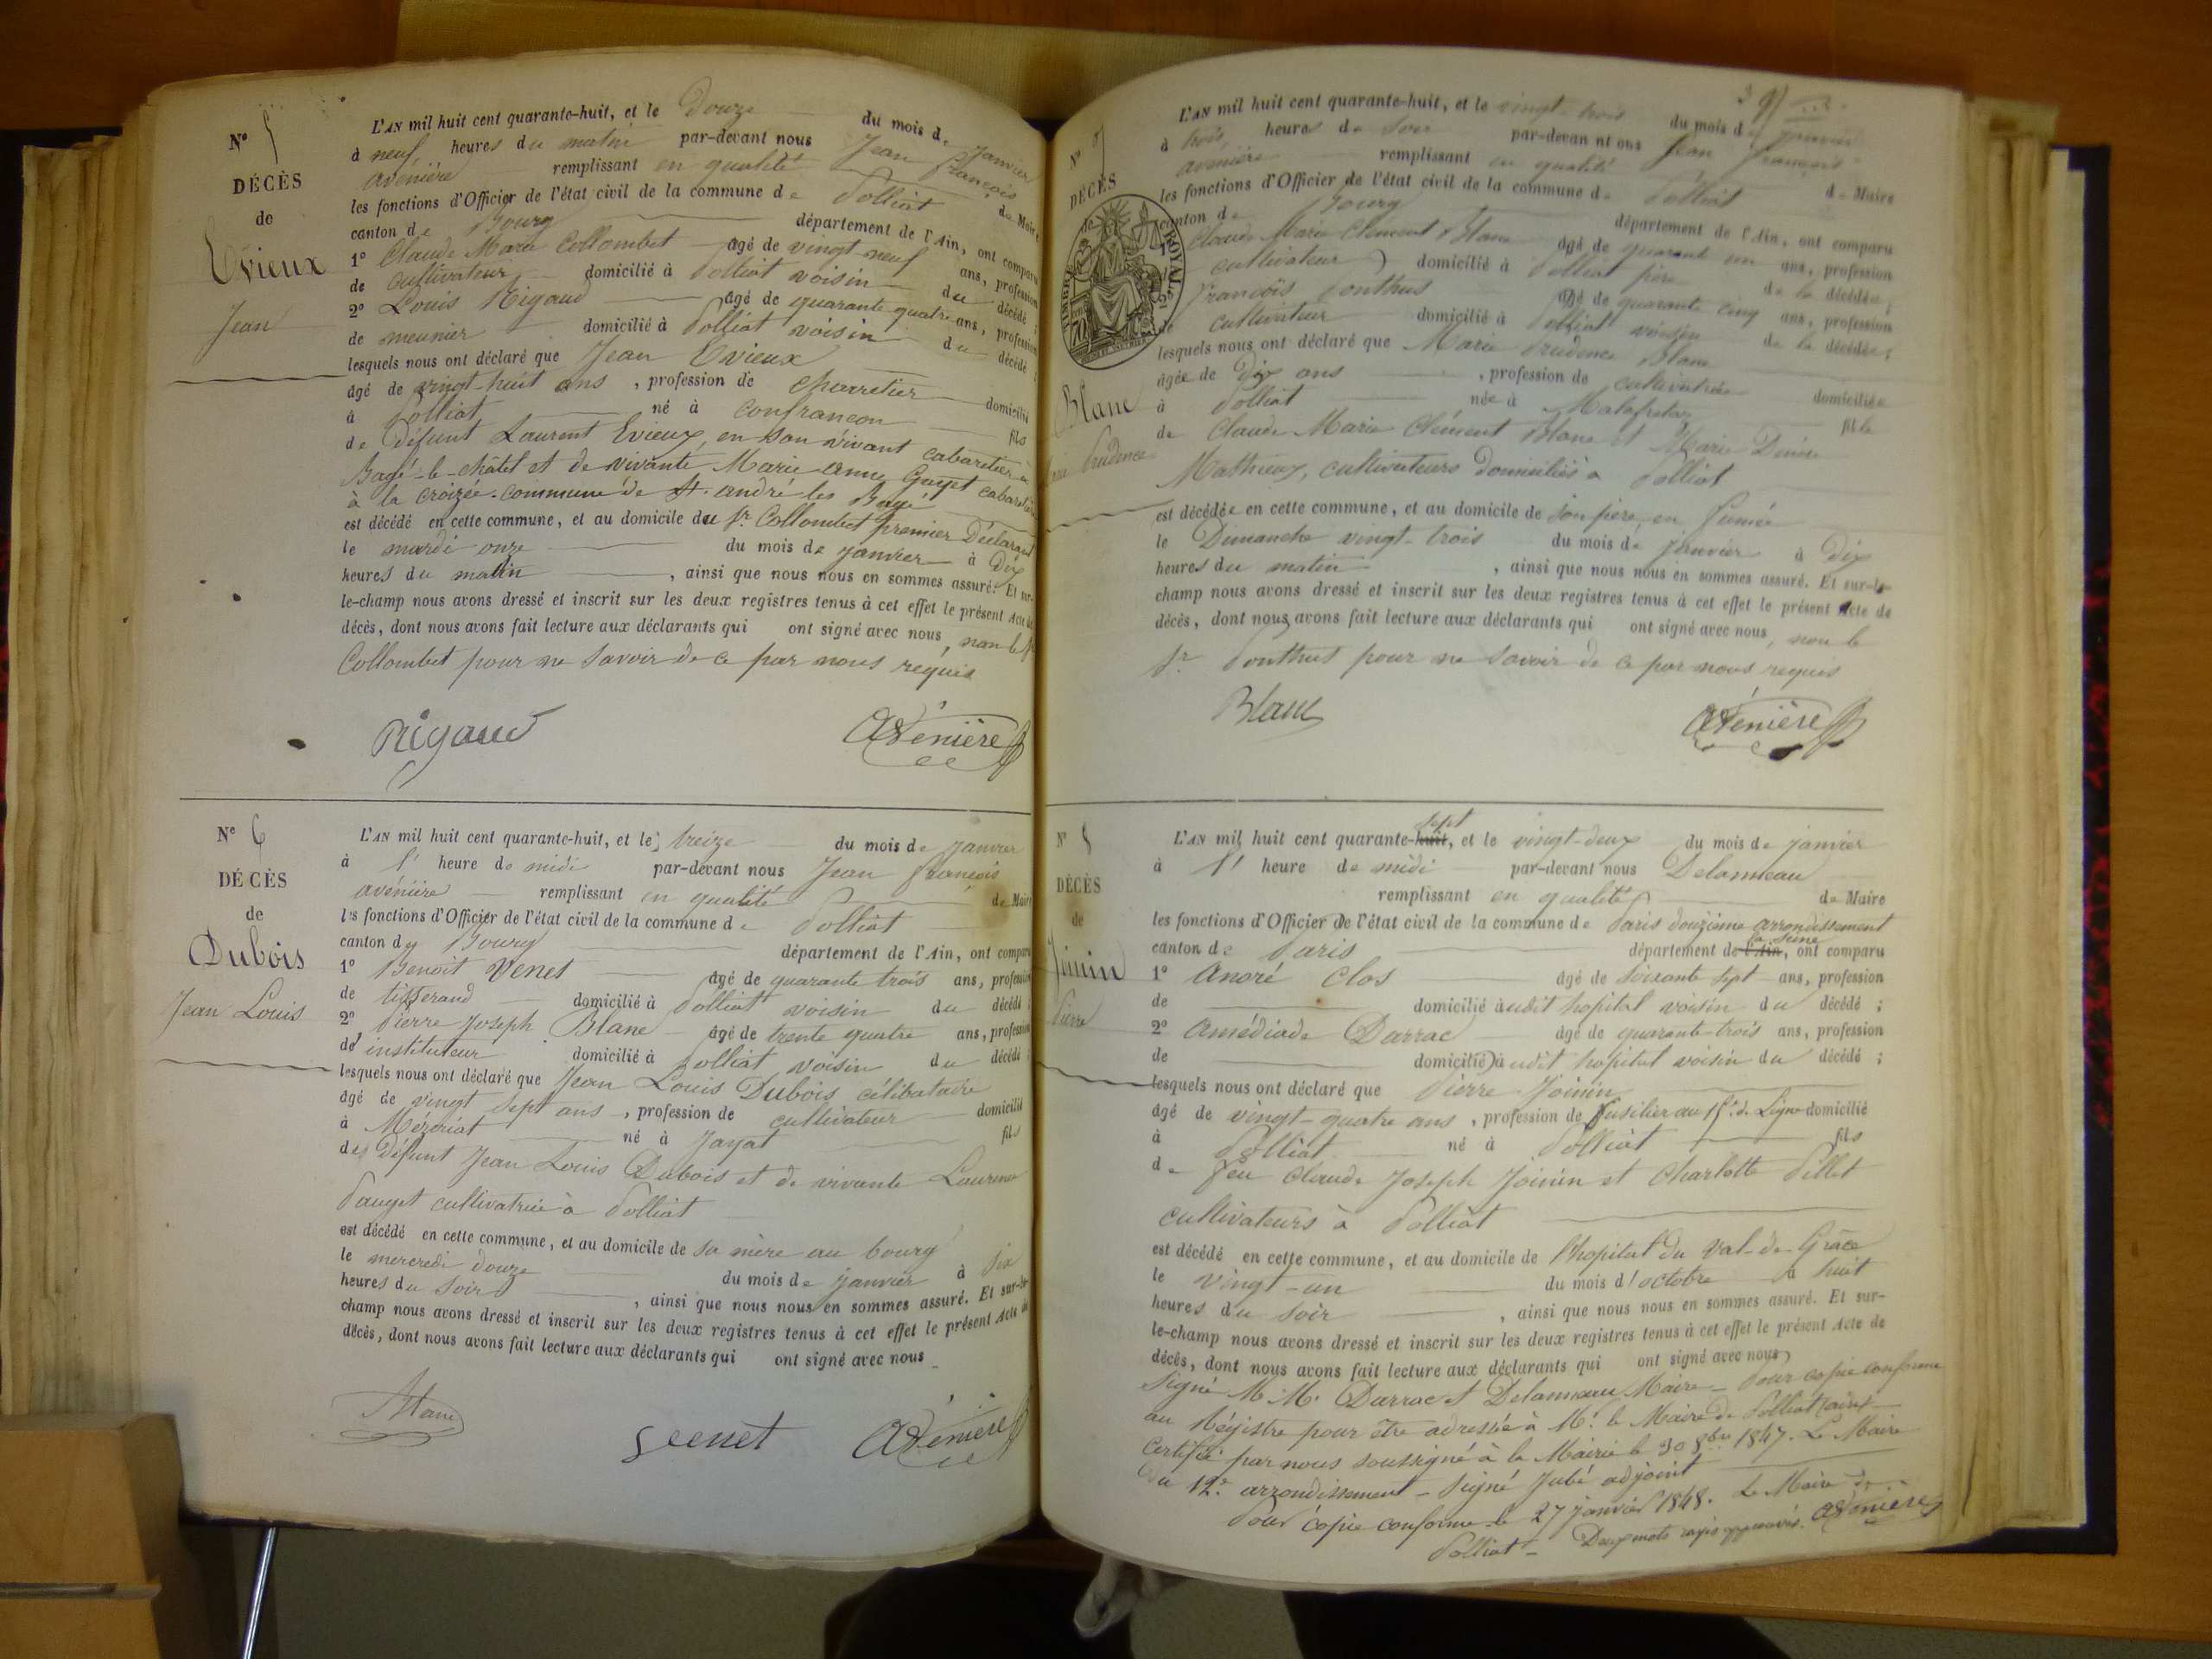 N° 5
DÉCÈS
de
Evieux
Jean
L'AN mil huit cent quarante-huit, et le Douze du mois de janvier
à neuf heures du matin par-devant nous Jean françois
avenière remplissant en qualité de Maire
les fonctions d'Officier de l'état civil de la commune de Polliat
canton de Bourg département de l'Ain, ont comparu
1° Claude Marie Collombet agé de vingt-neuf ans, profession
de cultivateur domicilié à Polliat voisin du décédé ;
2° Louis Rigaud agé de quarante quatre ans, profession
de meunier domicilié à Polliat voisin du décédé ;
lesquels nous ont déclaré que Jean Evieux
âgé de vingt-huit ans , profession de charretier domicilié
à Polliat né à confrancon fils
de défunt Laurent Evieux, en son vivant cabaretier à
Bagé-le-châtel et de vivante Marie anne Gayet cabaretière
à la croizée commune de St. andré les Bagé
est décédé en cette commune, et au domicile du Sr. Collombet premier Déclarant
le mardi onze du mois de janvier à Dix
heures du matin , ainsi que nous nous en sommes assuré. Et sur-
le-champ nous avons dressé et inscrit sur les deux registres tenus à cet effet le présent Acte de
décès, dont nous avons fait lecture aux déclarants qui ont signé avec nous, non le Sr
Collombet pour ne savoir de ce par nous requis
Rigaud Avenière
N° 6
DÉCÈS
de
Dubois
Jean Louis
L'AN mil huit cent quarante-huit, et le treize du mois de janvier
à l' heure de midi par-devant nous Jean françois
avénière remplissant en qualité de Maire
les fonctions d'Officier de l'état civil de la commune de Polliat
canton de Bourg département de l'Ain, ont comparu
1° Benoit Venet agé de quarante trois ans, profession
de tisserand domicilié à Polliat voisin du décédé ;
2° Pierre Joseph Blanc agé de trente quatre ans, profession
de instituteur domicilié à Polliat voisin du décédé ;
lesquels nous ont déclaré que Jean Louis Dubois célibataire
âgé de vingt sept ans , profession de cultivateur domicilié
à Mézériat né à Jayat fils
de Défunt Jean Louis Dubois et de vivante Laurence
Pauget cultivatrice à Polliat
est décédé en cette commune, et au domicile de sa mère au bourg
le mercredi douze du mois de janvier à six
heures du soir , ainsi que nous nous en sommes assuré. Et sur-le-
champ nous avons dressé et inscrit sur les deux registres tenus à cet effet le présent Acte de
décès, dont nous avons fait lecture aux déclarants qui ont signé avec nous
Blanc Veenet Avenière
N° 7
DÉCÈS
de
TIMBRE ROYAL
Blanc
Marie Prudence
L'AN mil huit cent quarante-huit, et le vingt-trois du mois de janvier
à trois heures du soir par-devant nous Jean françois
avenière remplissant en qualité de Maire
les fonctions d'Officier de l'état civil de la commune de Polliat
canton de Bourg département de l'Ain, ont comparu
1° Claude Marie Clément Blanc agé de quarante un ans, profession
de cultivateur domicilié à Polliat père de la décédée ;
2° françois Ponthus agé de quarante cinq ans, profession
de cultivateur domicilié à Polliat voisin de la décédée ;
lesquels nous ont déclaré que Marie Prudence Blanc
âgée de Dix ans , profession de cultivatrice domiciliée
à Polliat née à Malafretaz fille
de Claude Marie Clément Blanc et Marie Denise
Mathieux, cultivateurs domiciliés à Polliat
est décédée en cette commune, et au domicile de son père, en fumée
le Dimanche vingt-trois du mois de janvier à Dix
heures du matin , ainsi que nous nous en sommes assuré. Et sur-le-
champ nous avons dressé et inscrit sur les deux registres tenus à cet effet le présent Acte de
décès, dont nous avons fait lecture aux déclarants qui ont signé avec nous, non le
Sr. Ponthus pour ne savoir de ce par nous requis
Blanc Avenière
N° 8
DÉCÈS
de
Joinin
Pierre
L'AN mil huit cent quarante-huit sept, et le vingt-deux du mois de janvier
à l' heure de midi par-devant nous Delanneau
remplissant en qualité de Maire
les fonctions d'Officier de l'état civil de la commune de Paris douzième arrondissement
canton de Paris département de l'Ain la Seine, ont comparu
1° André Clos agé de soixante sept ans, profession
de domicilié audit hopital voisin du décédé ;
2° Amédiade Darrac agé de quarante-trois ans, profession
de domicilié audit hopital voisin du décédé ;
lesquels nous ont déclaré que Pierre Joinin
âgé de vingt-quatre ans , profession de fusilier au 15e. de Ligne domicilié
à Polliat né à Polliat fils
de feu Claude Joseph Joinin et Charlotte Pillet
cultivateurs à Polliat
est décédé en cette commune, et au domicile de l'hopital du Val-de-Grâce
le vingt-un du mois d'octobre à huit
heures du soir , ainsi que nous nous en sommes assuré. Et sur-
le-champ nous avons dressé et inscrit sur les deux registres tenus à cet effet le présent Acte de
décès, dont nous avons fait lecture aux déclarants qui ont signé avec nous,
Signé M.M. Darrac et Delanneau Maire - Pour copie conforme
au Régistre pour être adressée à Mr. le Maire de Polliat (ain)
certifié par nous soussigné à la Mairie le 30 8bre 1847. Le Maire
du 12e. arrondissement - Signé Jubé adjoint
Pour copie conforme le 27 janvier 1848. Le Maire de
Polliat - Deux mots rayés approuvés. Avenière